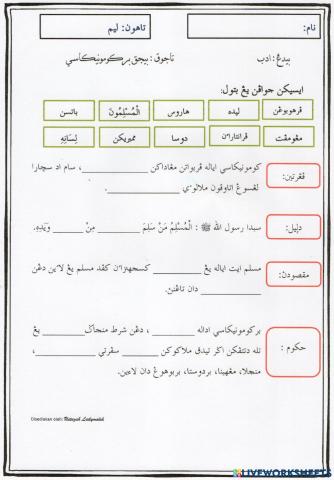 نام:
تاهون: ليم
بيدڠ: ادب
تاجوق: بيجق بركومونيكاسي
ايسيکن جواڤن يڠ بتول:
ڤرهوبوڠن ليده هاروس الْمُسْلِمُونَ باتسن
مڠومڤت ڤرانتاراٴن دوسا ممبريکن لِسَانِهِ
ڤڠرتين:
كومونيكاسي اياله ڤربواتن مڠاداكن ________، سام اد سچارا
لڠسوڠ اتاوڤون ملالوءي ________.
دليل:
سبدا رسول الله ﷺ: الْمُسْلِمُ مَنْ سَلِمَ ________ مِنْ ________ وَيَدِهِ.
مقصودن:
مسلم ايت اياله يڠ ________ كسجهتراٴن كڤد مسلم يڠ لاين دڠن
________ دان تاڠنڽ.
حكوم:
بركومونيكاسي اداله ________، دڠن شرط منجاݢ ________ يڠ
تله دتتڤكن اݢر تيدق ملاكوكن ________ سڤرتي ________،
منچلا، مڠهينا، بردوستا، بربوهوڠ دان لاءين.
Disediakan oleh:
LIVEWORKSHEETS